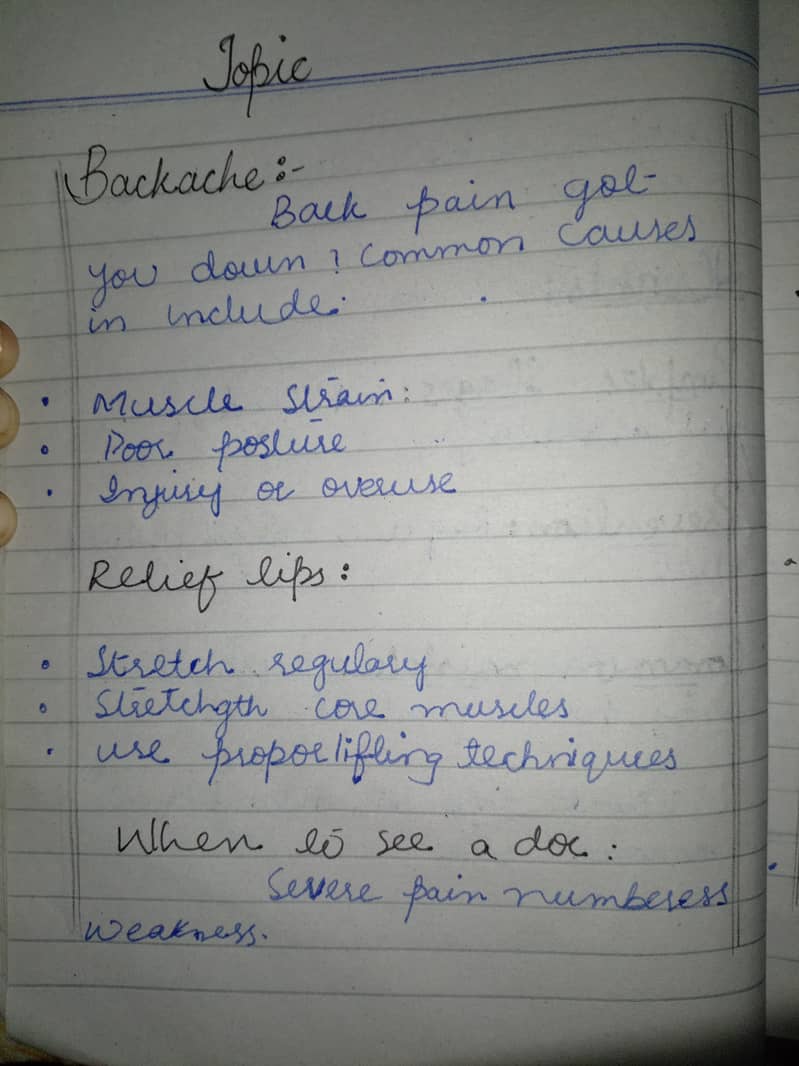 Topic
Backache:-
Back pain got
you down? Common causes
in include:
• Muscle strain:
• Poor posture
• Injury or overuse
Relief tips:
• Stretch regulary
• Stretchgth core muscles
• use propor lifting techniques
When to see a doc:
Severe pain numberess
weakness.